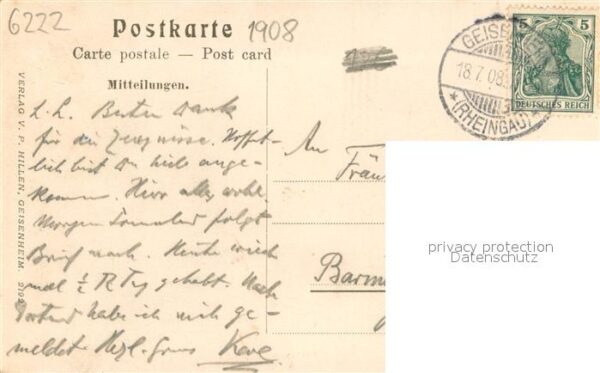 6222
Postkarte 1908
Carte postale — Post card
Mitteilungen.
L. H. Besten Dank
für die Zeugnisse. Hoffent-
lich bist Du heil ange-
kommen. Hier alles wohl.
Morgen folgt
Brief nach. Heute wieder
mal ½ Tag gehabt. Nach
habe ich mich ge-
meldet. Herzl. Gruss Karl
VERLAG V. P. HILLEN, GEISENHEIM. 2192
An
Fräu
Barm
GEISENHEIM
18.7.08.
*(RHEINGAU)*
5 5
DEUTSCHES REICH
privacy protection
Datenschutz